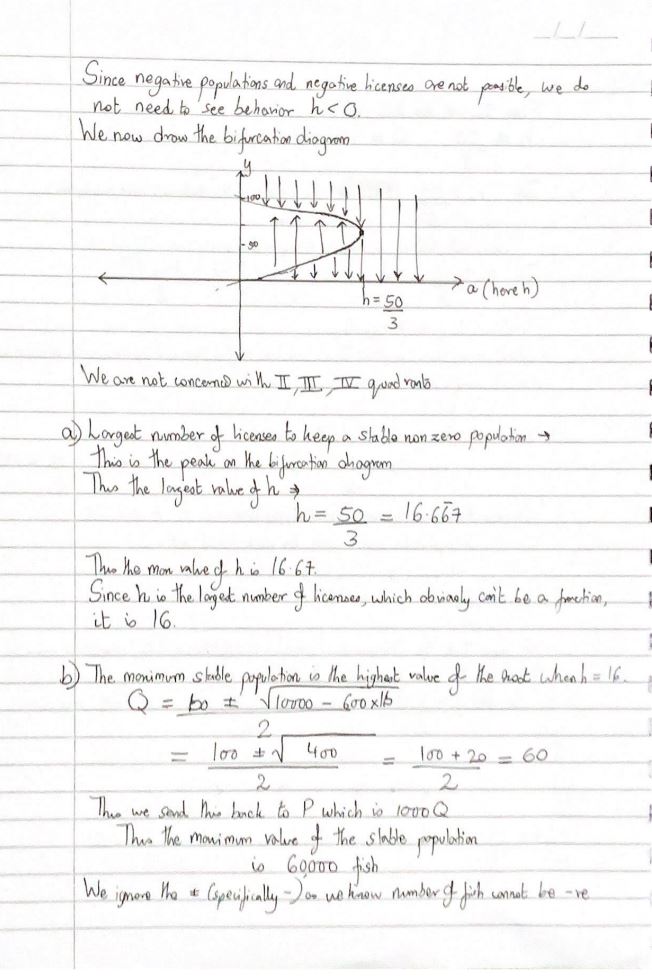 Since negative populations and negative licenses are not possible, we do
not need to see behavior h < 0.
We now draw the bifurcation diagram
y
100
50
a (here h)
h = 50/3
We are not concerned with II, III, IV quadrants
a) Largest number of licenses to keep a stable non zero population →
This is the peak on the bifurcation diagram
Thus the largest value of h →
h = 50/3 = 16.667
Thus the max value of h is 16.67.
Since h is the largest number of licenses, which obviously can't be a fraction,
it is 16.
b) The maximum stable population is the highest value of the root when h = 16.
Q = 100 ± √10000 - 600 x 16 / 2
= 100 ± √400 / 2 = 100 + 20 / 2 = 60
Thus we send this back to P which is 1000 Q
Thus the maximum value of the stable population
is 60,000 fish
We ignore the ± (specifically -) as we know number of fish cannot be -ve